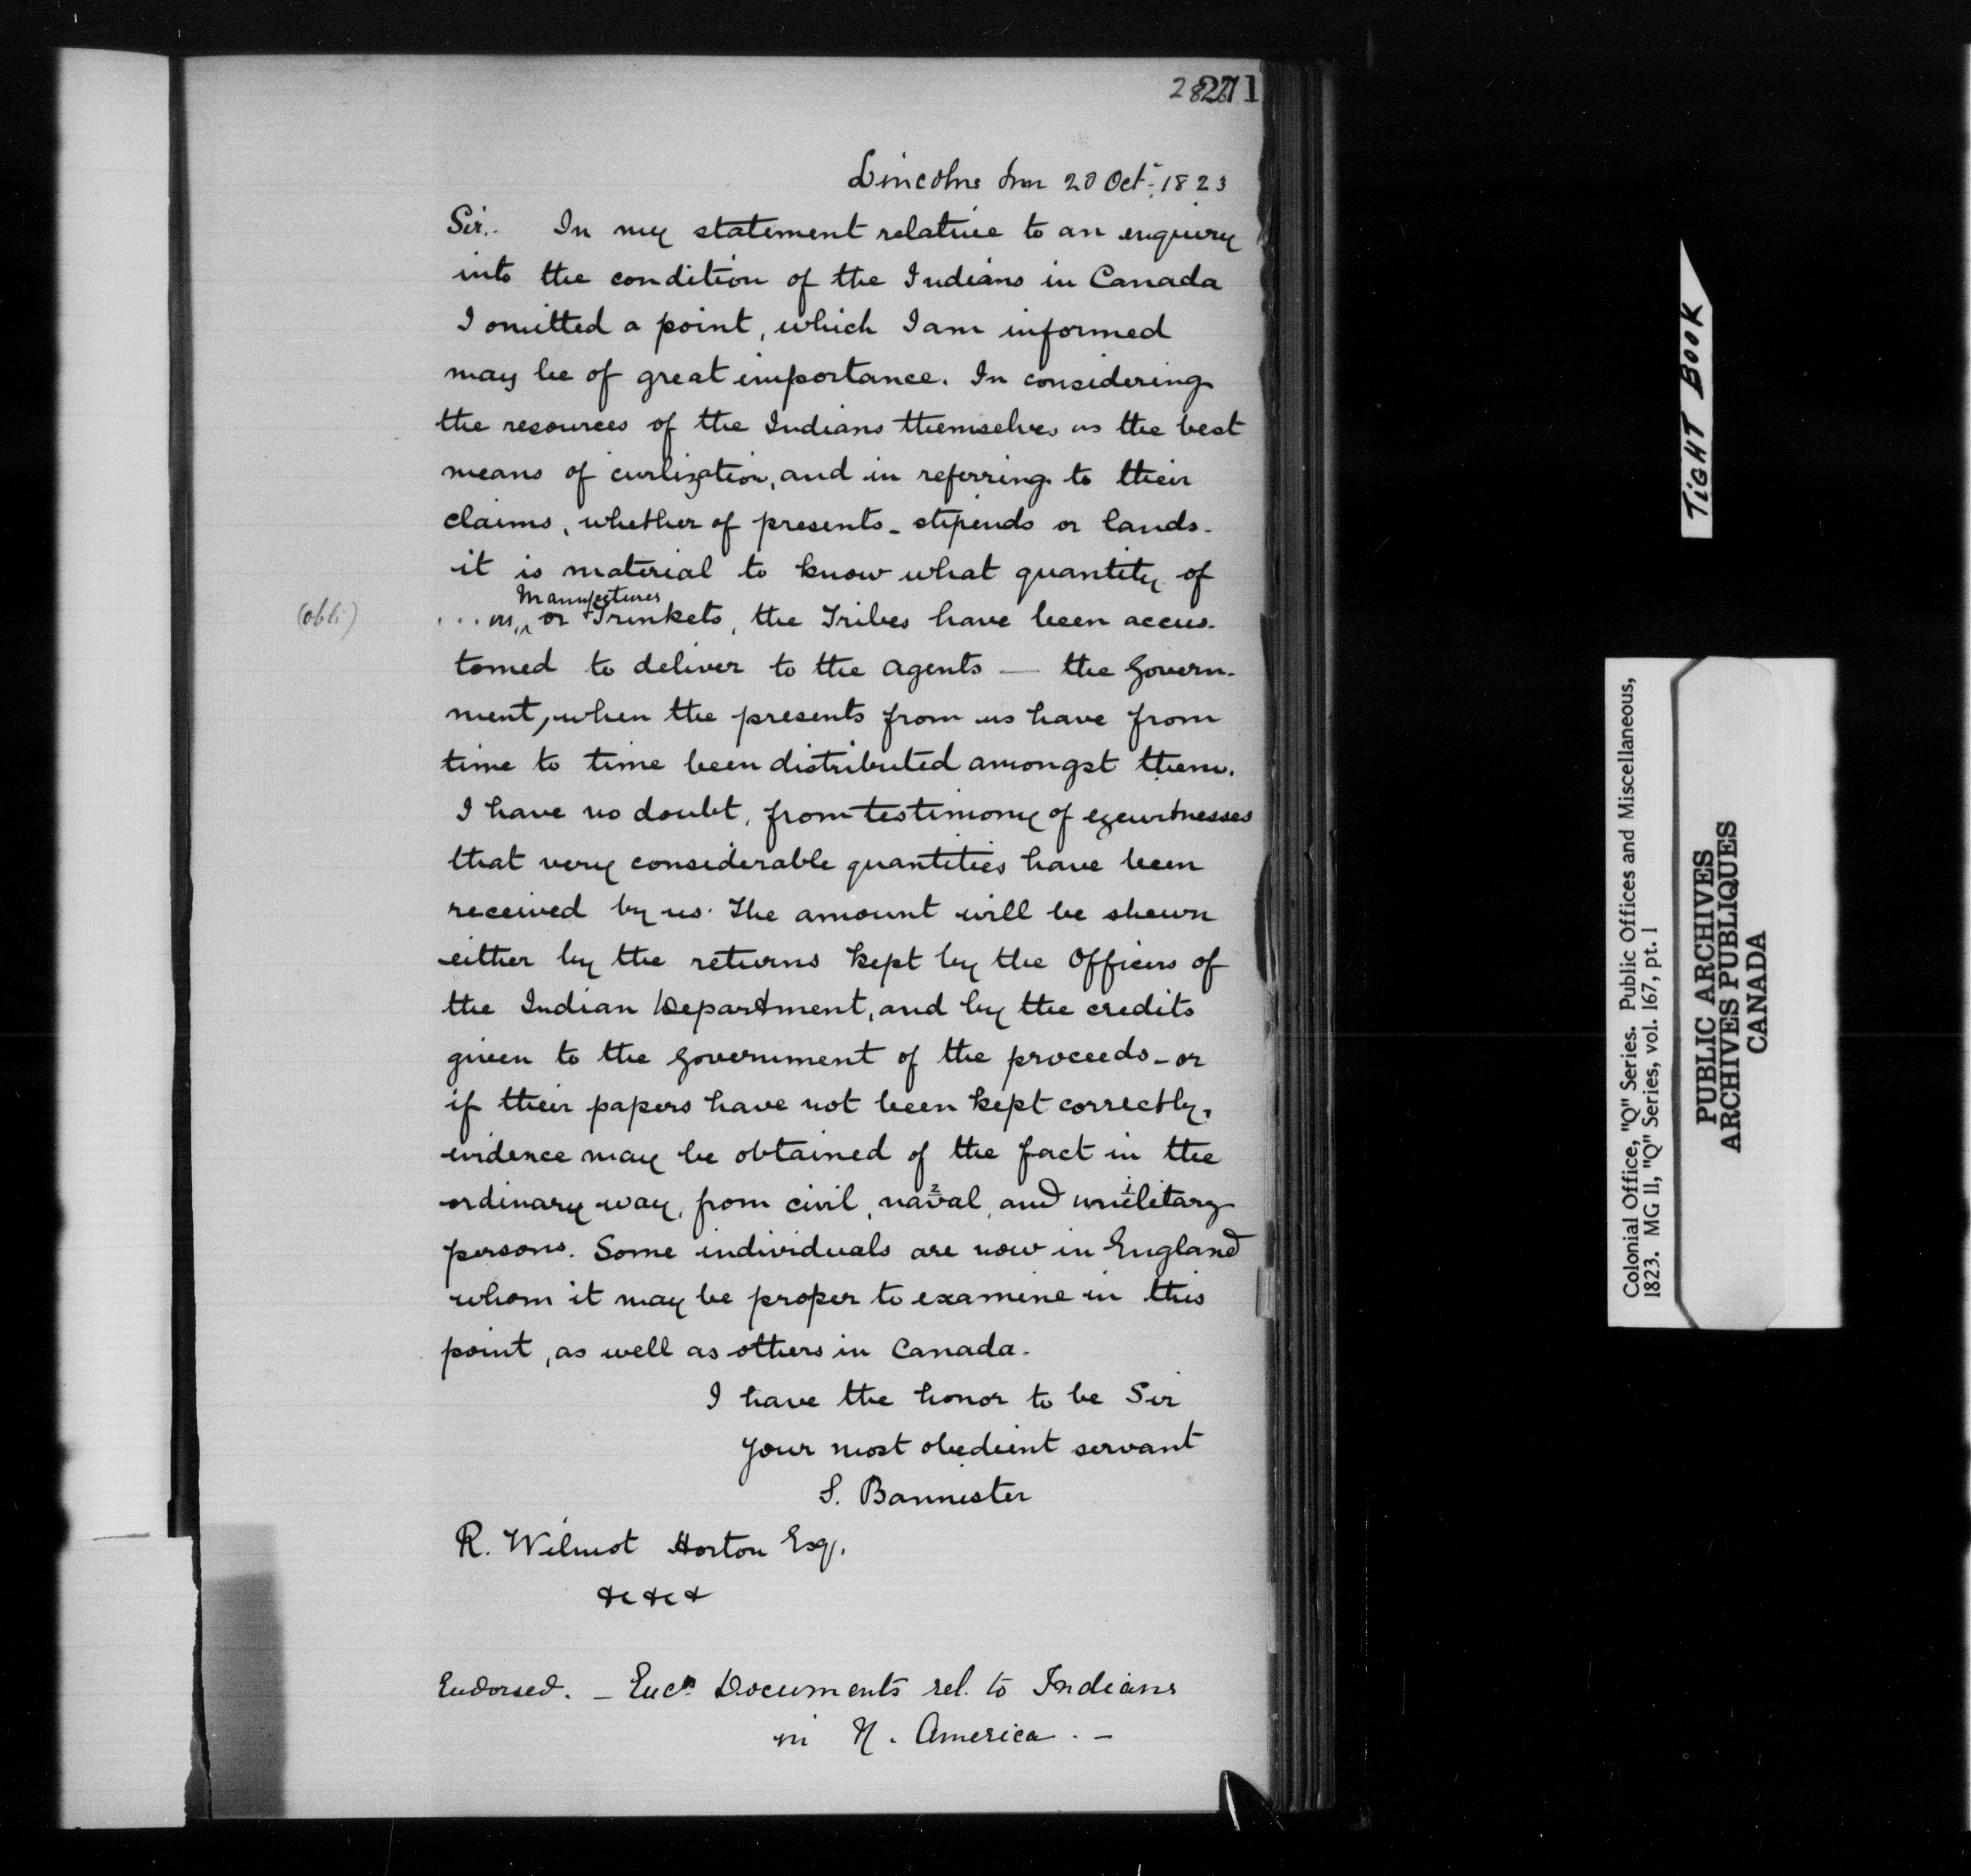 271
Lincolns Inn 20 Oct. 1823
Sir.. In my statement relative to an enquiry
into the condition of the Indians in Canada
I omitted a point, which I am informed
may be of great importance. In considering
the resources of the Indians themselves as the best
means of civilization, and in referring to their
claims, whether of presents - stipends or lands -
it is material to know what quantity of
Manufactures
(obli) ... or Trinkets, the Tribes have been accus-
tomed to deliver to the Agents — the Govern-
ment, when the presents from us have from
time to time been distributed amongst them.
I have no doubt, from testimony of eyewitnesses
that very considerable quantities have been
received by us. The amount will be shewn
either by the returns kept by the Officers of
the Indian Department, and by the credits
given to the Government of the proceeds - or
if their papers have not been kept correctly,
evidence may be obtained of the fact in the
2 1
ordinary way, from civil, naval, and military
persons. Some individuals are now in England
whom it may be proper to examine in this
point, as well as others in Canada.
I have the honor to be Sir
Your most obedient servant
S. Bannister
R. Wilmot Horton Esq.
&c &c &
Endorsed. - Documents rel. to Indians
in N. America. -
TIGHT BOOK
Colonial Office, "Q" Series. Public Offices and Miscellaneous,
1823. MG 11, "Q" Series, vol. 167, pt. 1
PUBLIC ARCHIVES
ARCHIVES PUBLIQUES
CANADA